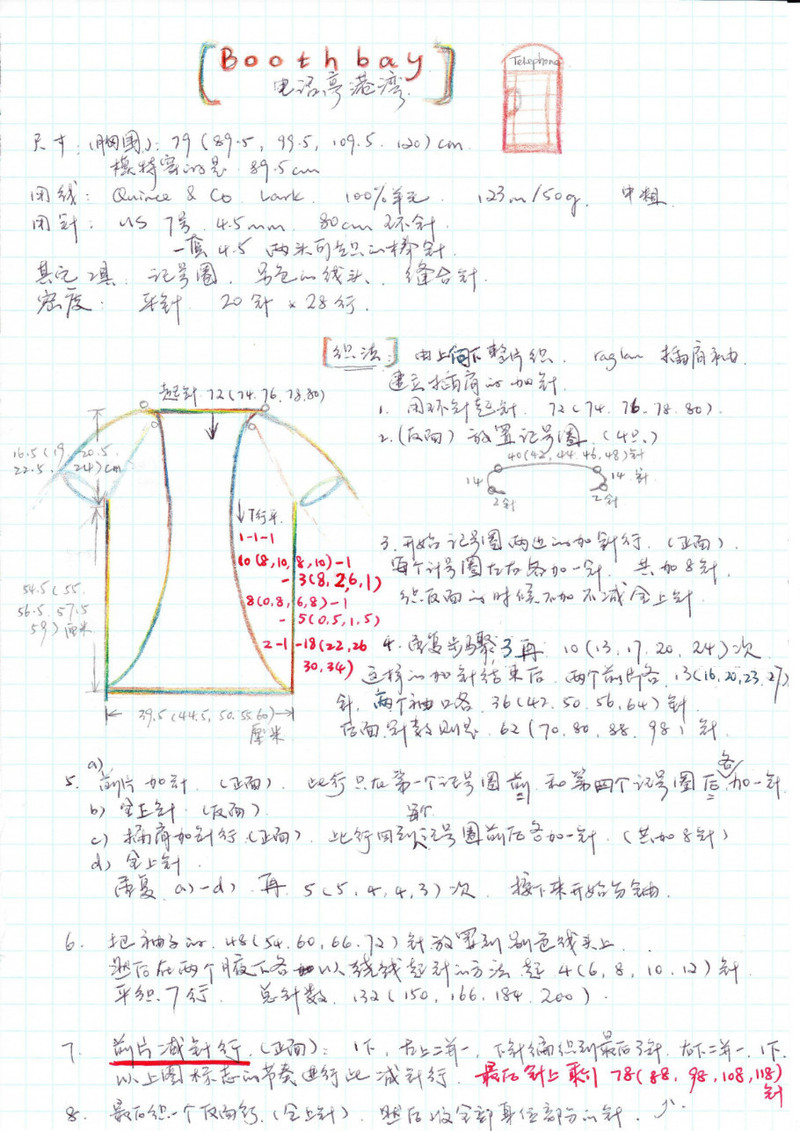 [Boothbay]
电话亭港湾
Telephone
尺寸:(胸围):79(89.5, 99.5, 109.5. 120)cm.
模特穿的是 89.5cm
用线: Quince & Co Lark. 100%羊毛. 123m/50g. 中粗.
用针: US 7号. 4.5mm. 80cm 环针.
一套 4.5 两头可织的棒针.
其它工具: 记号圈. 另色的线头. 缝合针.
密度: 平针 20针 × 28行.
[织法:] 由上向下整片织. raglan 插肩袖.
建立插肩的加针.
1. 用环针起针. 72(74. 76. 78. 80).
2.(反面)放置记号圈.(4只)
40(42. 44. 46. 48)针
14
14针
2针
2针
起针.72(74.76.78.80)
16.5(19. 20.5.
22.5. 24)cm
↓7行平.
1-1-1
10(8,10,8,10)-1
-3(8,2,6,1)
8(0,8,6,8)-1
-5(0,5,1,5)
2-1-18(22,26
30,34)
54.5(55.
56.5. 57.5
59)厘米
39.5(44.5, 50.55.60)
厘米
3. 开始记号圈两边的加针行.(正面).
每个记号圈左右各加一针. 共加8针.
织反面的时候不加不减全上针.
4. 重复步骤3再 10(13. 17. 20. 24)次
这样的加针结束后. 两个前片各 13(16,20,23,27)
针. 两个袖口各. 36(42. 50. 56. 64)针.
后面针数则是. 62(70. 80. 88. 98)针.
5. a) 前片加针.(正面). 此行只在第一个记号圈前 和第四个记号圈后各加一针
b) 全上针.(反面).
c) 插肩加针行.(正面). 此行回到每个记号圈前后各加一针.(共加8针)
d) 全上针.
重复 a)-d) 再 5(5, 4, 4, 3)次 接下来开始分袖.
6. 把袖子的. 48(54. 60, 66. 72)针放置到别色线头上.
然后在两个腋下各加以绕线起针的方法 起 4(6, 8, 10. 12)针.
平织7行. 总针数. 132(150, 166. 184. 200).
7. 前片减针行.(正面): 1下, 右上二并一, 下针编织到最后3针. 左下二并一. 1下.
以上图标志的节奏进行此减针行. 最后针上剩 78(88, 98, 108, 118)
针
8. 最后织一个反面行.(全上针). 然后收全部身位部分的针.